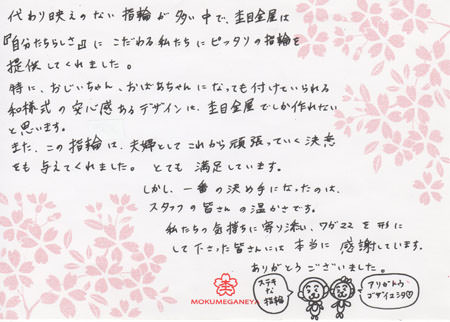 代わり映えのない指輪が多い中で、杢目金屋は
『自分たちらしさ』にこだわる私たちにピッタリの指輪を
提供してくれました。
特に、おじいちゃん、おばあちゃんになっても付けていられる
和様式の安心感あるデザインは、杢目金屋でしか作れない
と思います。
また、この指輪は、夫婦としてこれから頑張っていく決意
をも与えてくれました。とても満足しています。
しかし、一番の決め手になったのは、
スタッフの皆さんの温かさです。
私たちの気持ちに寄り添い、ワガママを形に
して下さった皆さんには本当に感謝しています。
ありがとうございました。
ステキ
な
指輪
アリガトウ
ゴザイマシタ♡
MOKUMEGANEYA